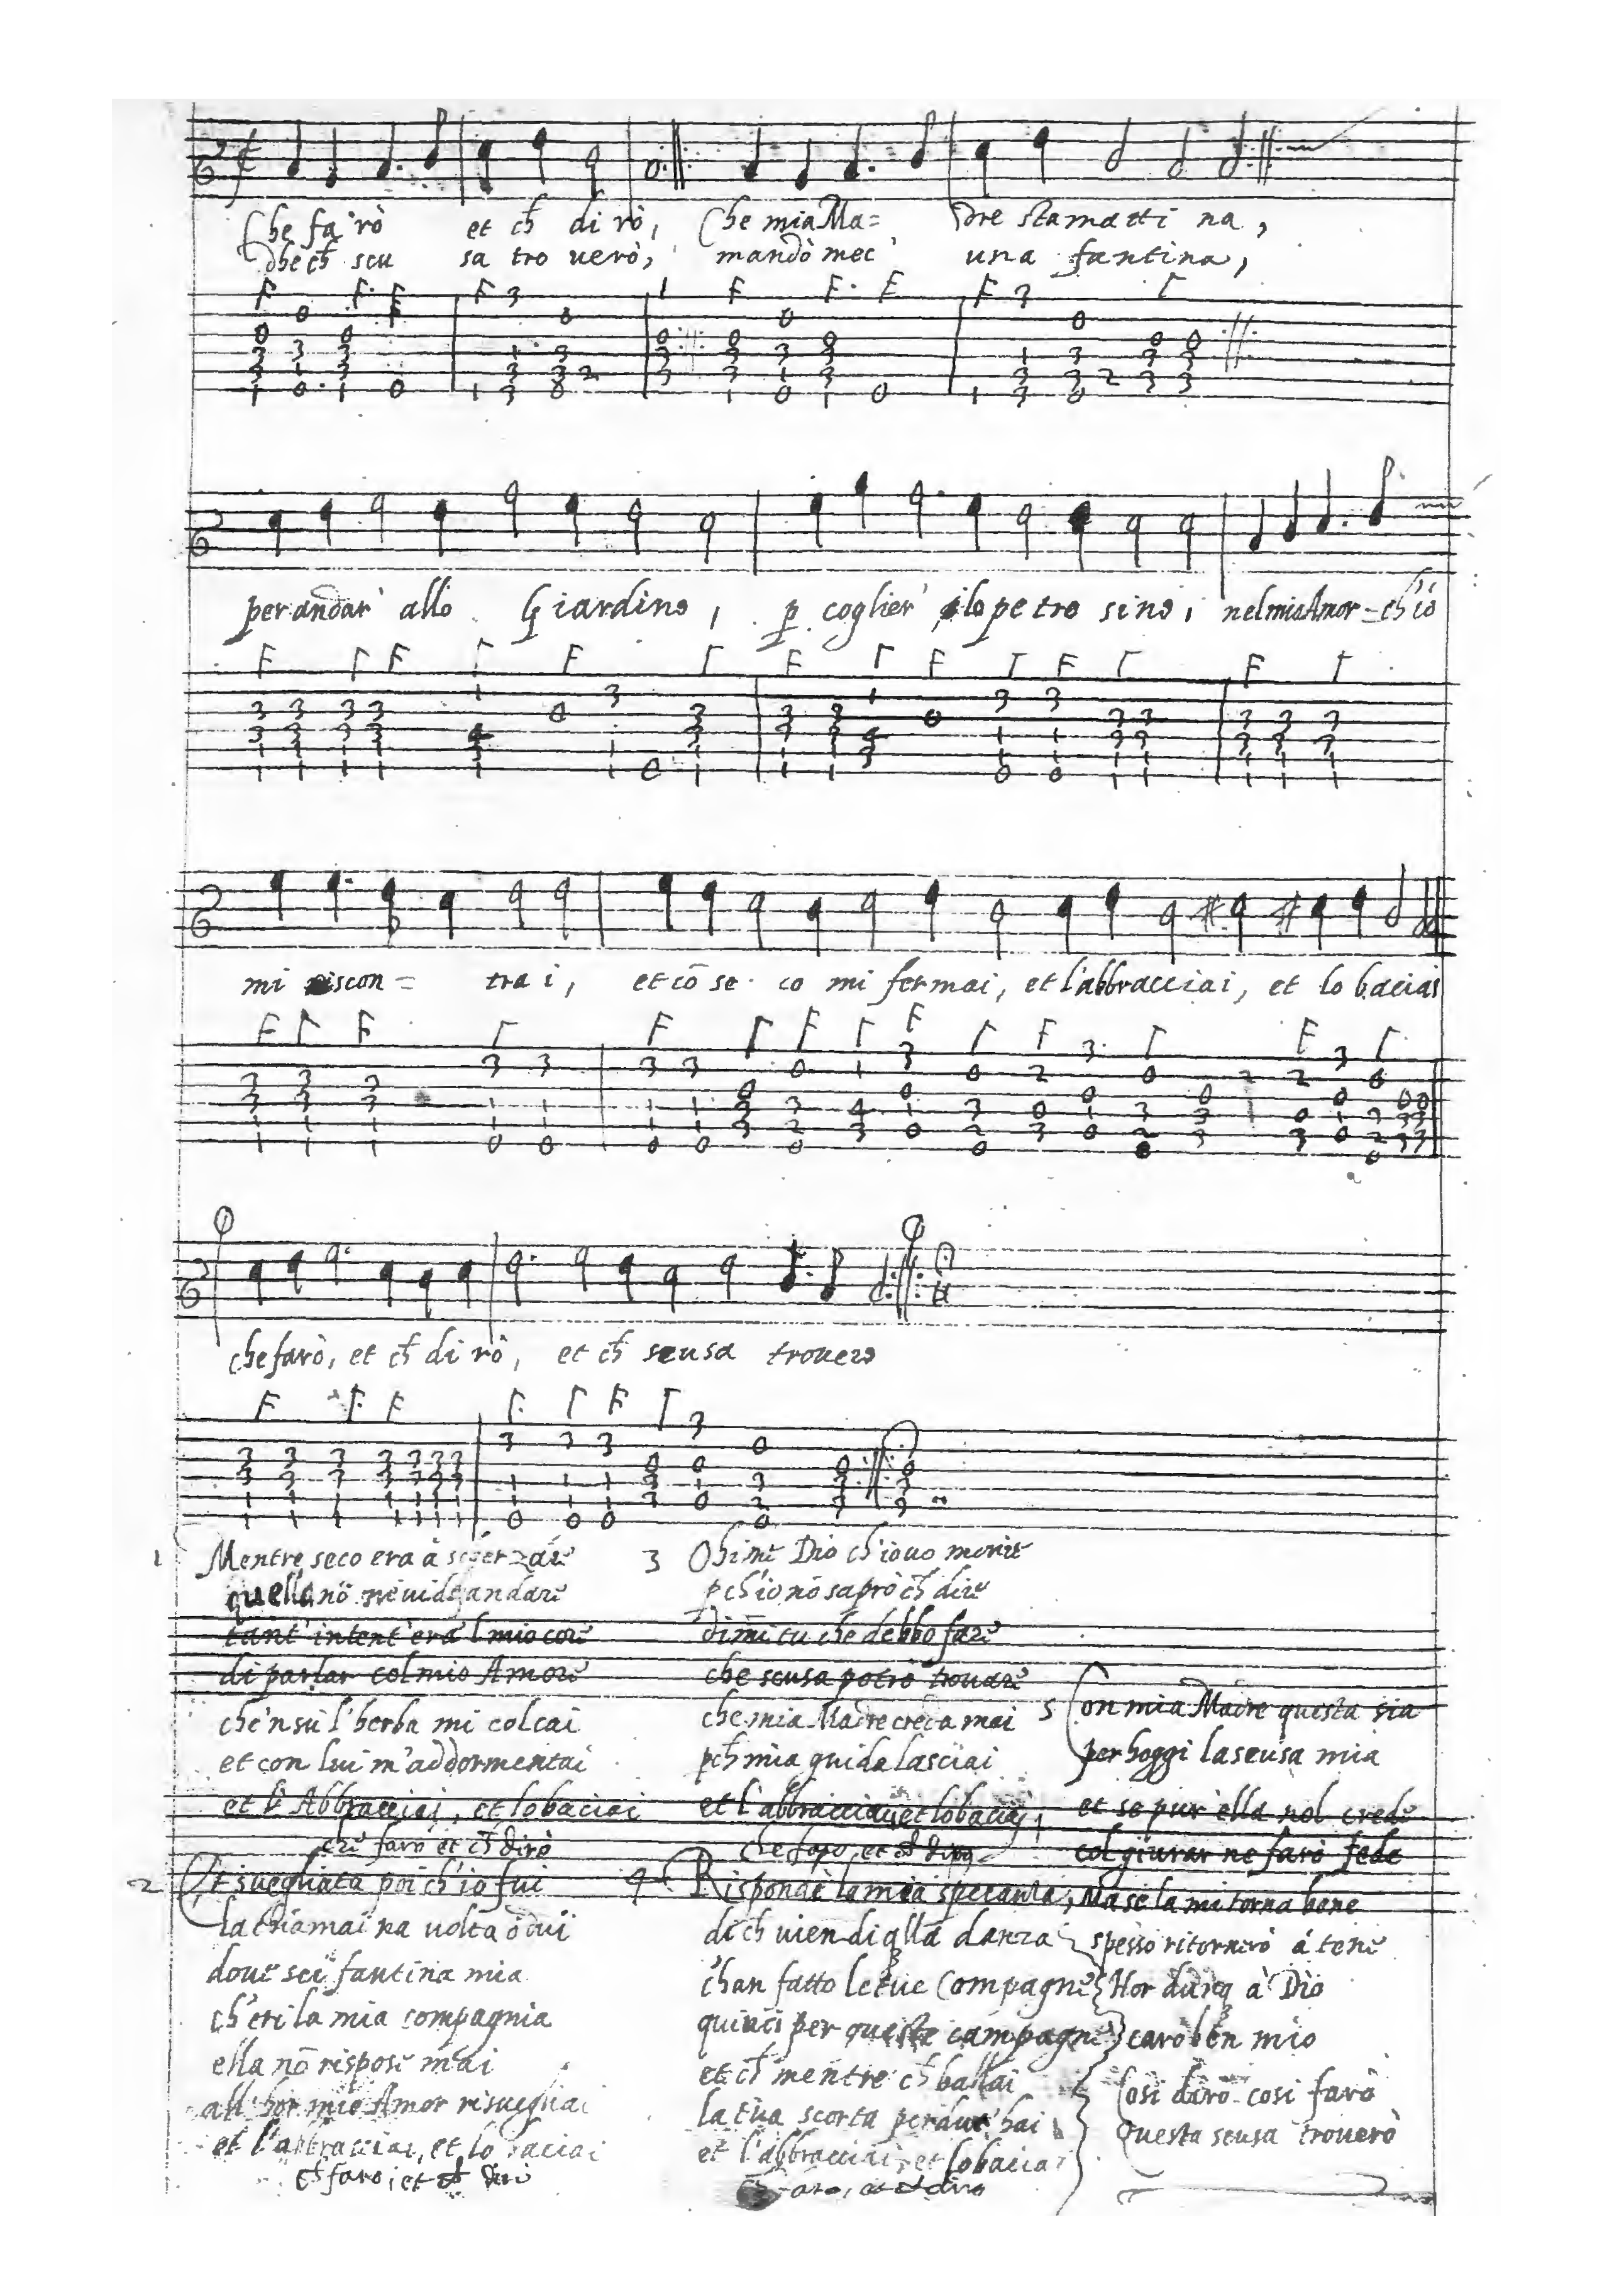 Che farò et ch̄ di rò, Che mia Ma= dre stamatti na,
Ohe ch̄ scu sa tro verò, mandò mec' una fantina,
per andar' allo Giardino, p coglier' ilo petro sino, nel mio Amor - ch'io
mi riscon = tra i, et cō se co mi fermai, et l'abbracciai, et lo baciai
che farò, et ch̄ di rò, et ch̄ scusa trovero
1 Mentre seco era à scherzare
quella nō mi vidde andare
tant' intent' era 'l mio core
di parlar col mio Amore
che 'n sù l'herba mi colcai
et con lui m'addormentai
et l'Abbracciai, et lo baciai
che farò et ch̄ dirò
2 Et svegliata poi ch'io fui
la chiamai na volta ò dui
dove sei fantina mia
ch'eri la mia compagnia
ella nō rispose mai
all'hor mio Amor risvegliai
et l'abbracciai, et lo baciai
ch̄ faro, et ch̄ diro
3 Ohime Dio ch'io vo morire
pch'io nō saprò ch̄ dire
dimi tu che debbo fare
che scusa potrò trovare
che mia Madre creda mai
pch̄ mia guida lasciai
et l'abbracciai, et lo baciai,
che faro, et ch̄ diro
4 Risponde la mia speranza,
di ch̄ vien di qlla danza
c'han fatto le tue Compagne
quinci per queste campagne
et ch̄ mentre ch̄ ballai
la tua scorta perdut' hai
et l'abbracciai, et lo baciai
ch̄ faro, et ch̄ diro
5 Con mia Madre questa sia
per hoggi la scusa mia
et se pur ella nol crede
col giurar ne farò fede
Ma se la mi torna bene
spesso ritornerò à tene
Hor dunq à Dio
caro ben mio
Cosi dirò cosi farò
Questa scusa troverò